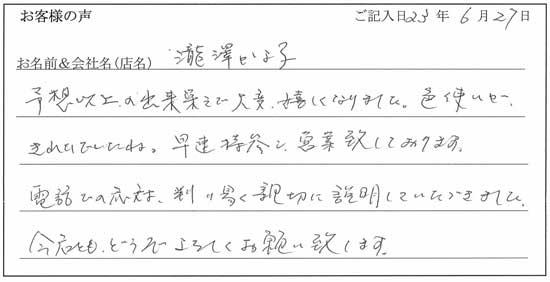 お客様の声 ご記入日23年6月27日
お名前&会社名(店名) 瀧澤かよ子
予想以上の出来栄えで大変、嬉しくなりました。色使いも、
きれいでしたね。早速持参し、営業致しております。
電話での応対も、判り易く親切に説明していただきました。
今后とも、どうぞよろしくお願い致します。